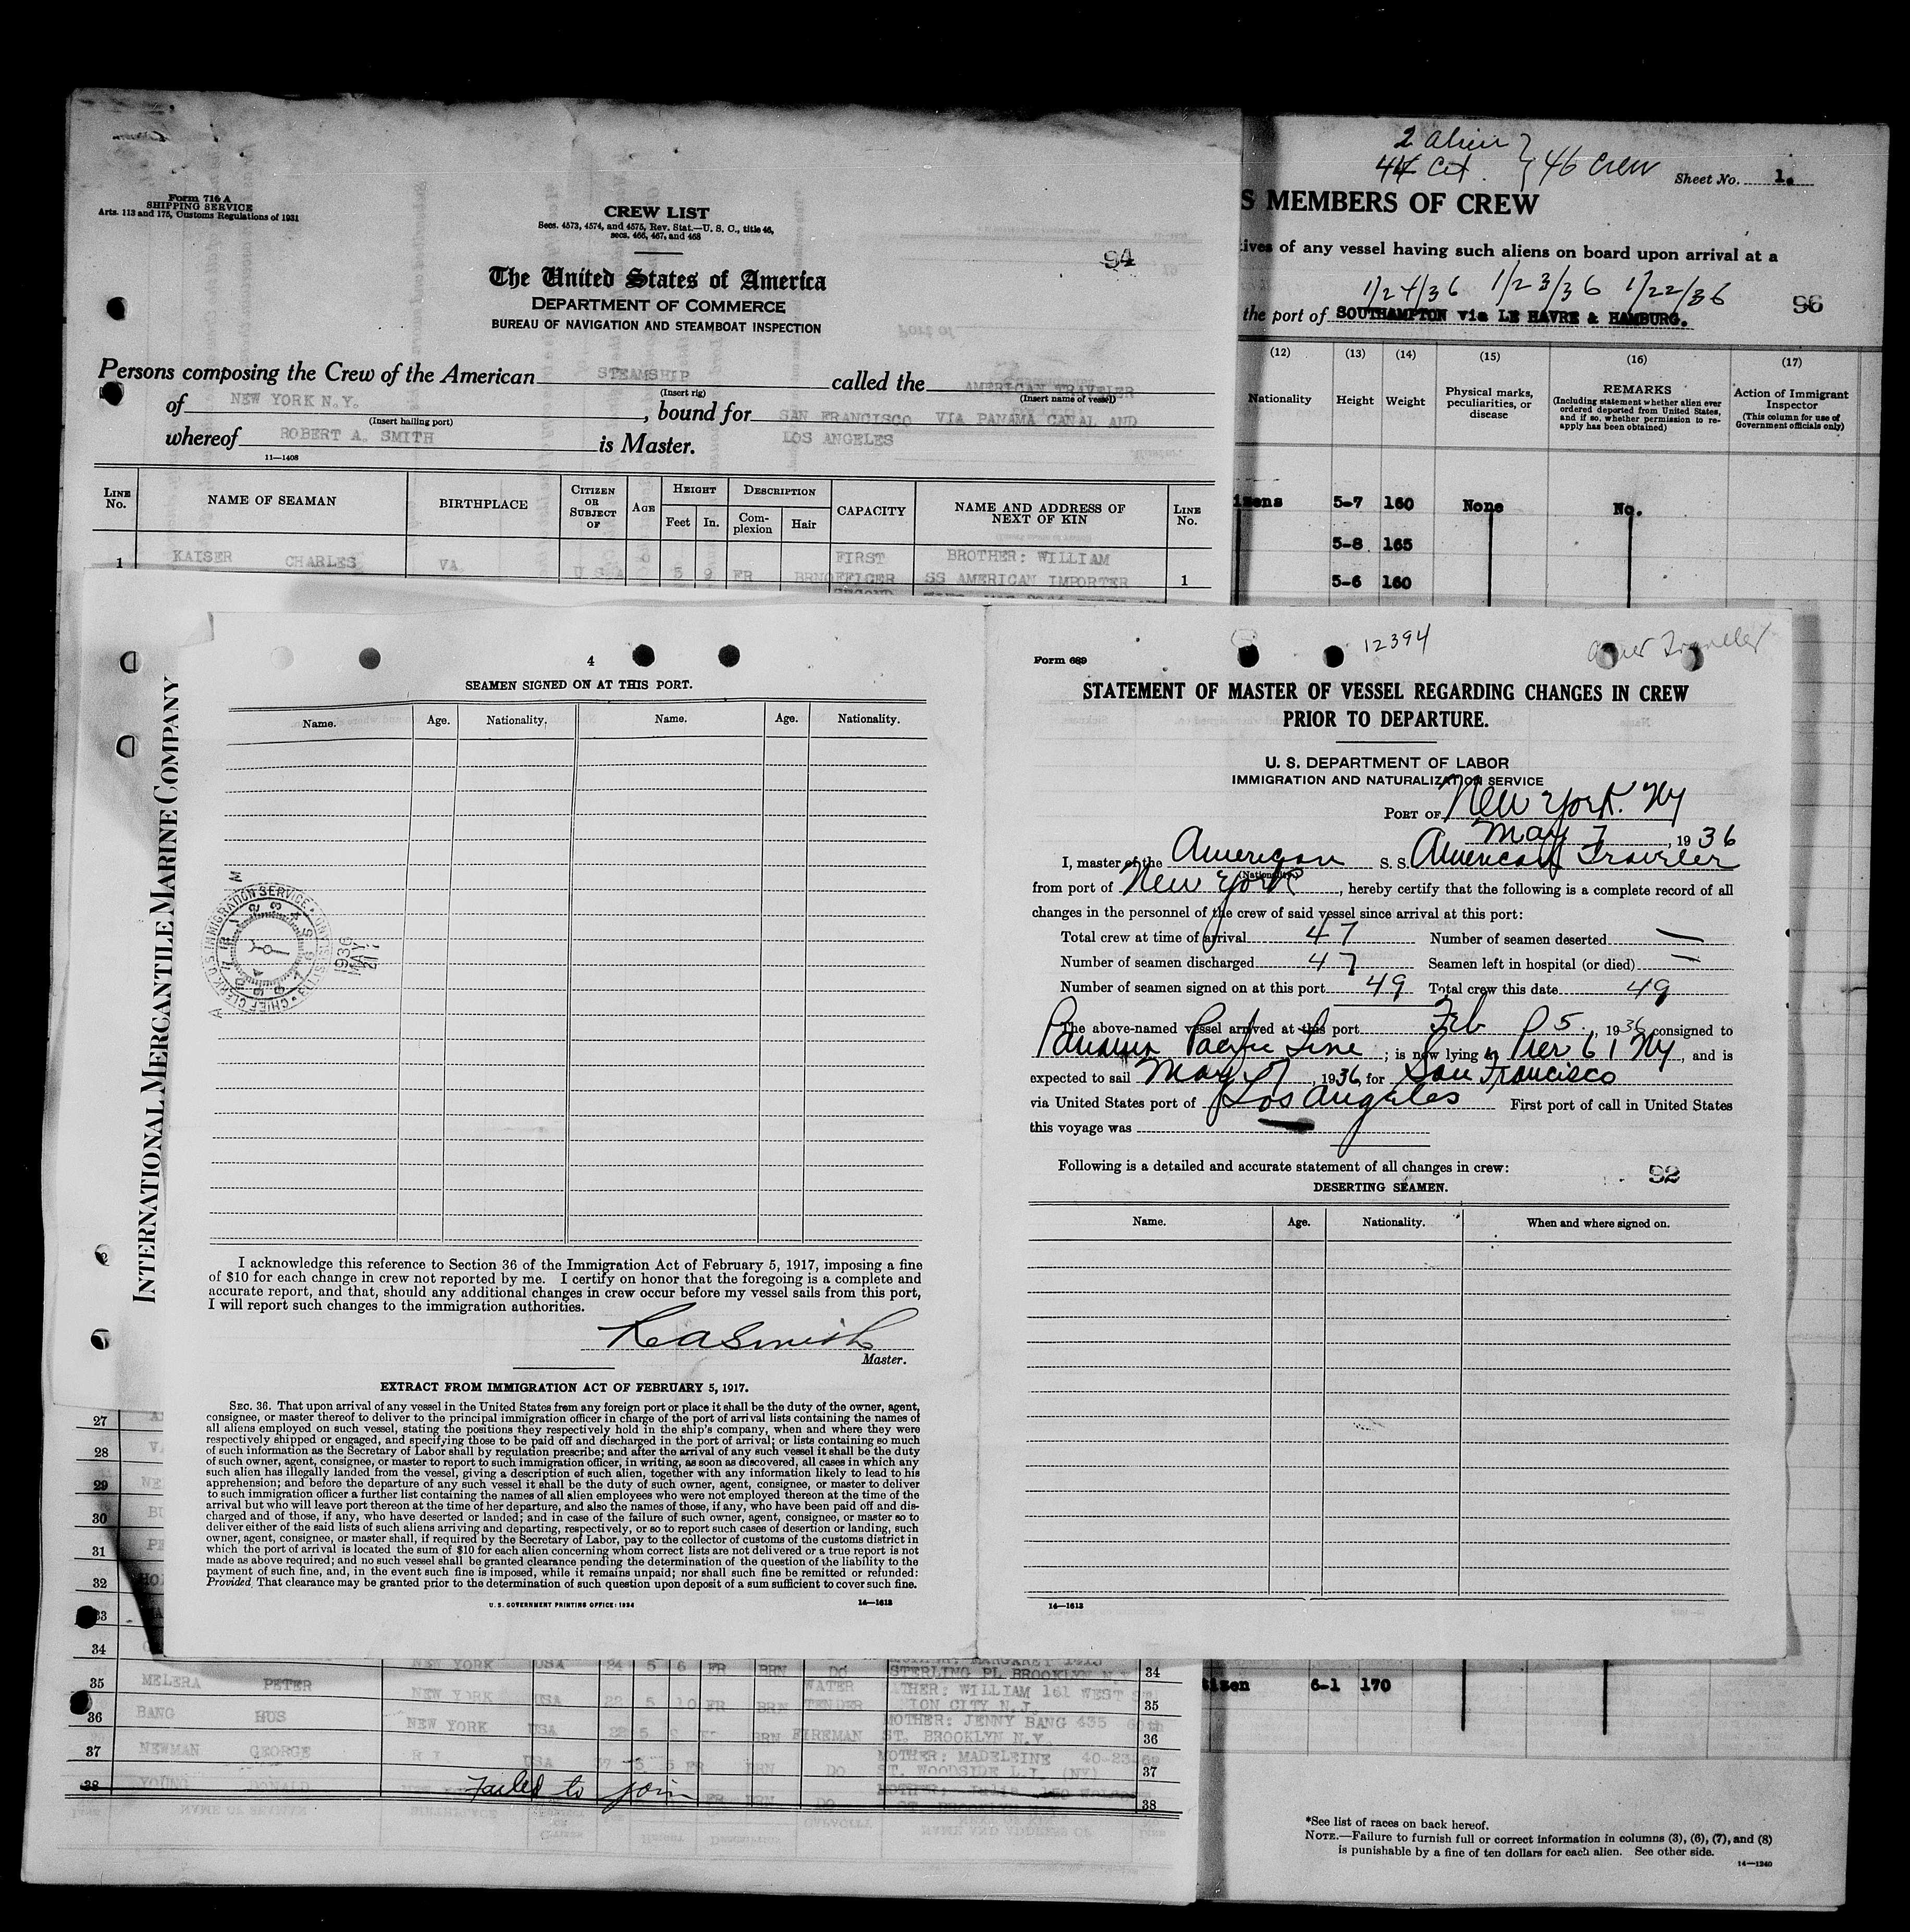 Form 716 A
SHIPPING SERVICE
Arts. 113 and 175, Customs Regulations of 1931
CREW LIST
Secs. 4573, 4574, and 4575, Rev. Stat.—U. S. C., title 46,
secs. 466, 467, and 468
94
The United States of America
DEPARTMENT OF COMMERCE
BUREAU OF NAVIGATION AND STEAMBOAT INSPECTION
Persons composing the Crew of the American STEAMSHIP called the AMERICAN TRAVELER
(Insert rig) (Insert name of vessel)
of NEW YORK N.Y. , bound for SAN FRANCISCO VIA PANAMA CANAL AND
(Insert hailing port)
whereof ROBERT A. SMITH is Master. LOS ANGELES
11—1408
LINE No. NAME OF SEAMAN BIRTHPLACE CITIZEN OR SUBJECT OF AGE HEIGHT Feet In. DESCRIPTION Complexion Hair CAPACITY NAME AND ADDRESS OF NEXT OF KIN LINE No.
1 KAISER CHARLES VA. U S A 5 9 FR BRN FIRST OFFICER BROTHER: WILLIAM SS AMERICAN IMPORTER 1
SECOND
2 alien } 46 crew
44 Cit
Sheet No. 1.
S MEMBERS OF CREW
tives of any vessel having such aliens on board upon arrival at a
1/24/36 1/23/36 1/22/36
the port of SOUTHAMPTON via LE HAVRE & HAMBURG.
96
(12) (13) (14) (15) (16) (17)
Nationality Height Weight Physical marks, peculiarities, or disease REMARKS (Including statement whether alien ever ordered deported from United States, and if so, whether permission to reapply has been obtained) Action of Immigrant Inspector (This column for use of Government officials only)
izens 5-7 160 None No.
5-8 165
5-6 160
INTERNATIONAL MERCANTILE MARINE COMPANY
4
SEAMEN SIGNED ON AT THIS PORT.
Name. Age. Nationality. Name. Age. Nationality.
CHIEF CLERK U.S. IMMIGRATION SERVICE
1936 MAY
I acknowledge this reference to Section 36 of the Immigration Act of February 5, 1917, imposing a fine
of $10 for each change in crew not reported by me. I certify on honor that the foregoing is a complete and
accurate report, and that, should any additional changes in crew occur before my vessel sails from this port,
I will report such changes to the immigration authorities.
R A Smith
Master.
EXTRACT FROM IMMIGRATION ACT OF FEBRUARY 5, 1917.
SEC. 36. That upon arrival of any vessel in the United States from any foreign port or place it shall be the duty of the owner, agent,
consignee, or master thereof to deliver to the principal immigration officer in charge of the port of arrival lists containing the names of
all aliens employed on such vessel, stating the positions they respectively hold in the ship's company, when and where they were
respectively shipped or engaged, and specifying those to be paid off and discharged in the port of arrival; or lists containing so much
of such information as the Secretary of Labor shall by regulation prescribe; and after the arrival of any such vessel it shall be the duty
of such owner, agent, consignee, or master to report to such immigration officer, in writing, as soon as discovered, all cases in which any
such alien has illegally landed from the vessel, giving a description of such alien, together with any information likely to lead to his
apprehension; and before the departure of any such vessel it shall be the duty of such owner, agent, consignee, or master to deliver
to such immigration officer a further list containing the names of all alien employees who were not employed thereon at the time of the
arrival but who will leave port thereon at the time of her departure, and also the names of those, if any, who have been paid off and dis-
charged and of those, if any, who have deserted or landed; and in case of the failure of such owner, agent, consignee, or master so to
deliver either of the said lists of such aliens arriving and departing, respectively, or so to report such cases of desertion or landing, such
owner, agent, consignee, or master shall, if required by the Secretary of Labor, pay to the collector of customs of the customs district in
which the port of arrival is located the sum of $10 for each alien concerning whom correct lists are not delivered or a true report is not
made as above required; and no such vessel shall be granted clearance pending the determination of the question of the liability to the
payment of such fine, and, in the event such fine is imposed, while it remains unpaid; nor shall such fine be remitted or refunded:
Provided, That clearance may be granted prior to the determination of such question upon deposit of a sum sufficient to cover such fine.
U. S. GOVERNMENT PRINTING OFFICE: 1934 14—1613
12394
Amer Traveller
Form 689
STATEMENT OF MASTER OF VESSEL REGARDING CHANGES IN CREW
PRIOR TO DEPARTURE.
U. S. DEPARTMENT OF LABOR
IMMIGRATION AND NATURALIZATION SERVICE
PORT OF New York. Ny
May 7, 1936
I, master of the American S. S. American Traveler
(Nationality)
from port of New York, hereby certify that the following is a complete record of all
changes in the personnel of the crew of said vessel since arrival at this port:
Total crew at time of arrival 47 Number of seamen deserted —
Number of seamen discharged 47 Seamen left in hospital (or died) —
Number of seamen signed on at this port 49 Total crew this date 49
The above-named vessel arrived at this port Feb 5, 1936 consigned to
Panama Pacific Line ; is now lying at Pier 61 Ny, and is
expected to sail May 7, 1936, for San Francisco
via United States port of Los Angeles First port of call in United States
this voyage was
Following is a detailed and accurate statement of all changes in crew:
92
DESERTING SEAMEN.
Name. Age. Nationality. When and where signed on.
14—1613
27
28
29
30
31
32
33
34 NEW YORK USA 24 5 6 FR BRN DO MARGARET 1415 STERLING PL BROOKLYN N.Y. 34
35 MELERA PETER NEW YORK USA 22 5 10 FR BRN WATER TENDER WILLIAM 161 WEST ION CITY N.J. 35
36 BANG HUS NEW YORK USA 22 5 BRN FIREMAN MOTHER: JENNY BANG 435 60th ST. BROOKLYN N.Y. 36
37 NEWMAN GEORGE R I USA 5 FR BRN DO MOTHER: MADELEINE 40-23 ST. WOODSIDE L.I. (NY) 37
38 YOUNG DONALD Failed to join FR BRN DO MOTHER: Julia 38
tizen 6-1 170
*See list of races on back hereof.
NOTE.—Failure to furnish full or correct information in columns (3), (6), (7), and (8)
is punishable by a fine of ten dollars for each alien. See other side.
14—1240